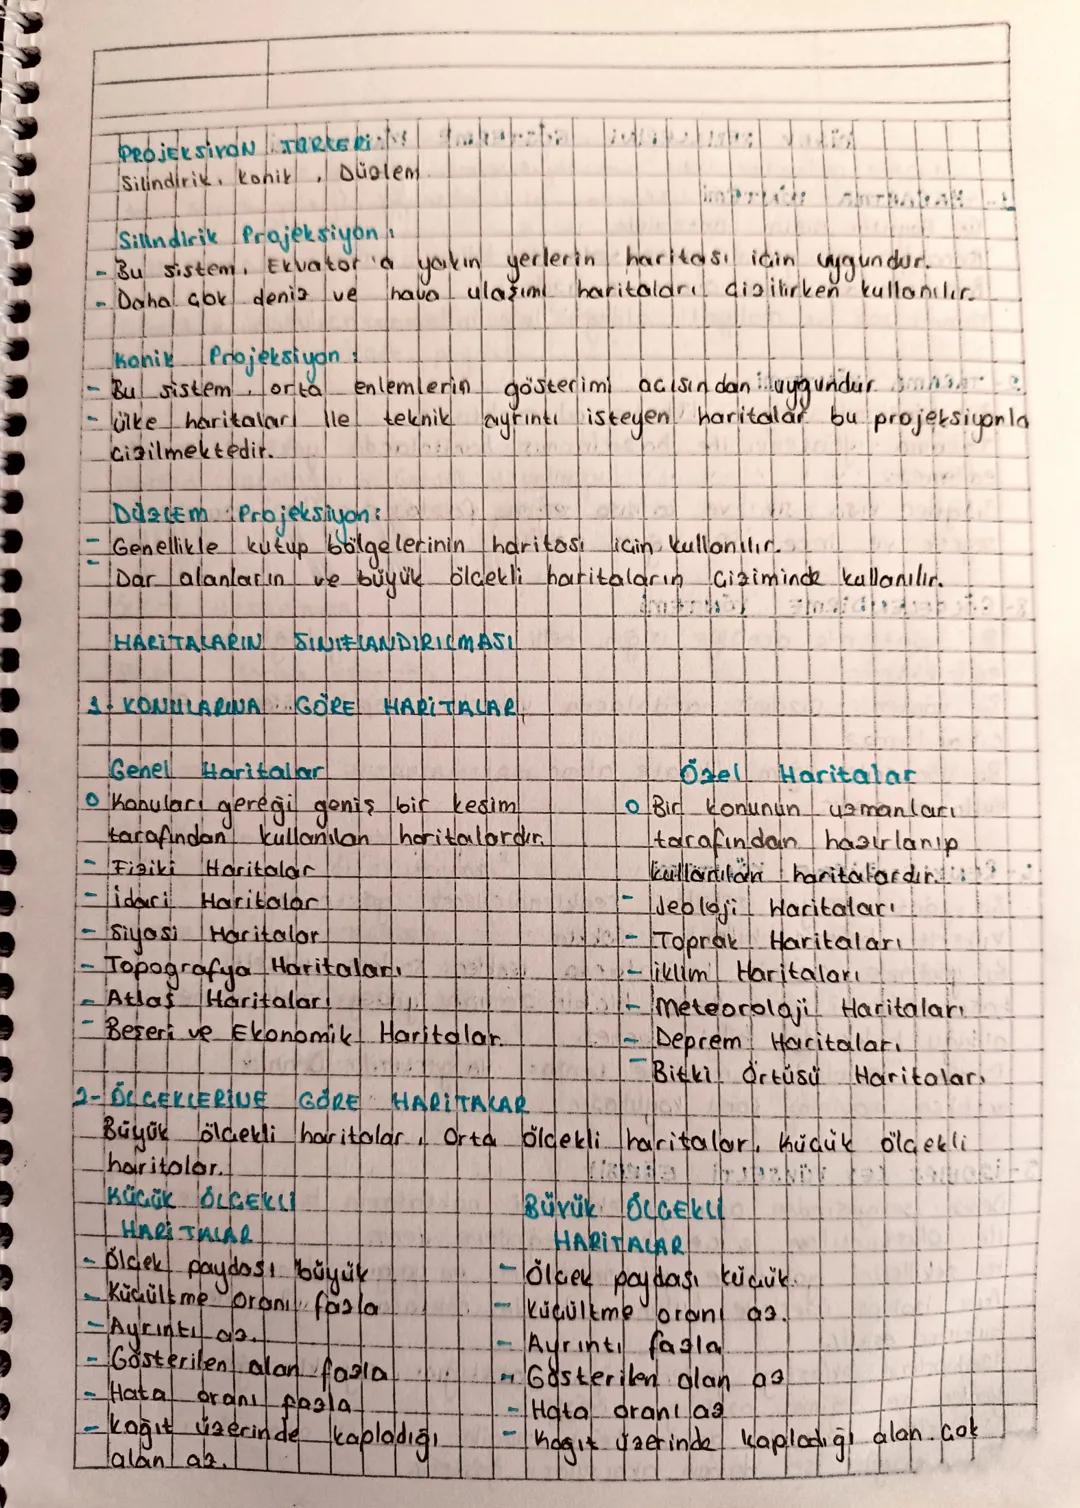 PROJEKSİYON TÜRLERİ
Silindirik, Konik, Düzlem
Silindirik Projeksiyon:
- Bu sistem, Ekvator'a yakın yerlerin haritası için uygundur.
- Daha çok deniz ve hava ulaşımı haritaları çizilirken kullanılır.
Konik Projeksiyon:
- Bu sistem, orta enlemlerin gösterimi açısından uygundur.
- ülke haritaları ile teknik ayrıntı isteyen haritalar bu projeksiyonla
çizilmektedir.
DüzLEM Projeksiyon:
- Genellikle kutup bölgelerinin haritası için kullanılır.
- Dar alanların ve büyük ölçekli haritaların çiziminde kullanılır.
HARİTALARIN SINIFLANDIRILMASI
1- KONULARINA GÖRE HARİTALAR
Genel Haritalar
o Konuları gereği geniş bir kesim
tarafından kullanılan haritalardır.
- Fiziki Haritalar
- İdari Haritalar
- Siyasi Haritalar
- Topografya Haritaları
- Atlas Haritaları
- Beşeri ve Ekonomik Haritalar
Özel Haritalar
o Bir konunun uzmanları
tarafından hazırlanıp
kullanılan haritalardır.
- Jeoloji Haritaları
- Toprak Haritaları
- iklim Haritaları
- Meteoroloji Haritaları
- Deprem Haritaları
- Bitki Örtüsü Haritaları
2- ÖLÇEKLERİNE GÖRE HARİTALAR
Büyük ölçekli haritalar, Orta ölçekli haritalar, Küçük ölçekli
haritalar.
KÜÇÜK ÖLÇEKLİ
HARİTALAR
- Ölçek paydası büyük
- Küçültme oranı fazla
- Ayrıntı az.
- Gösterilen alan fazla
- Hata oranı fazla
- Kağıt üzerinde kapladığı
alan az.
BÜYÜK ÖLÇEKLİ
HARİTALAR
- Ölçek paydası küçük.
- Küçültme oranı az.
- Ayrıntı fazla
- Gösterilen alan az
- Hata oranı az
- Kağıt üzerinde kapladığı alan çok